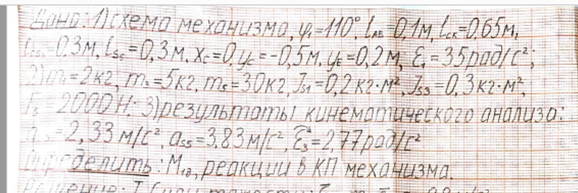 Дано: 1) схема механизма, φ₁=110°, lAB 0,1м, lCK=0,65м,
=0,3м, lSC=0,3м, xC=0, yC=-0,5м, yE=0,2м, ε₁=35рад/с²;
2) =2кг, m₃=5кг, m₅=30кг, JS1=0,2кг·м², JS3=0,3кг·м²,
F₅=2000Н; 3) результаты кинематического анализа:
=2,33м/с², aS5=3,83м/с², ε₃=2,77рад/с²
Определить: М₁, реакции в КП механизма.